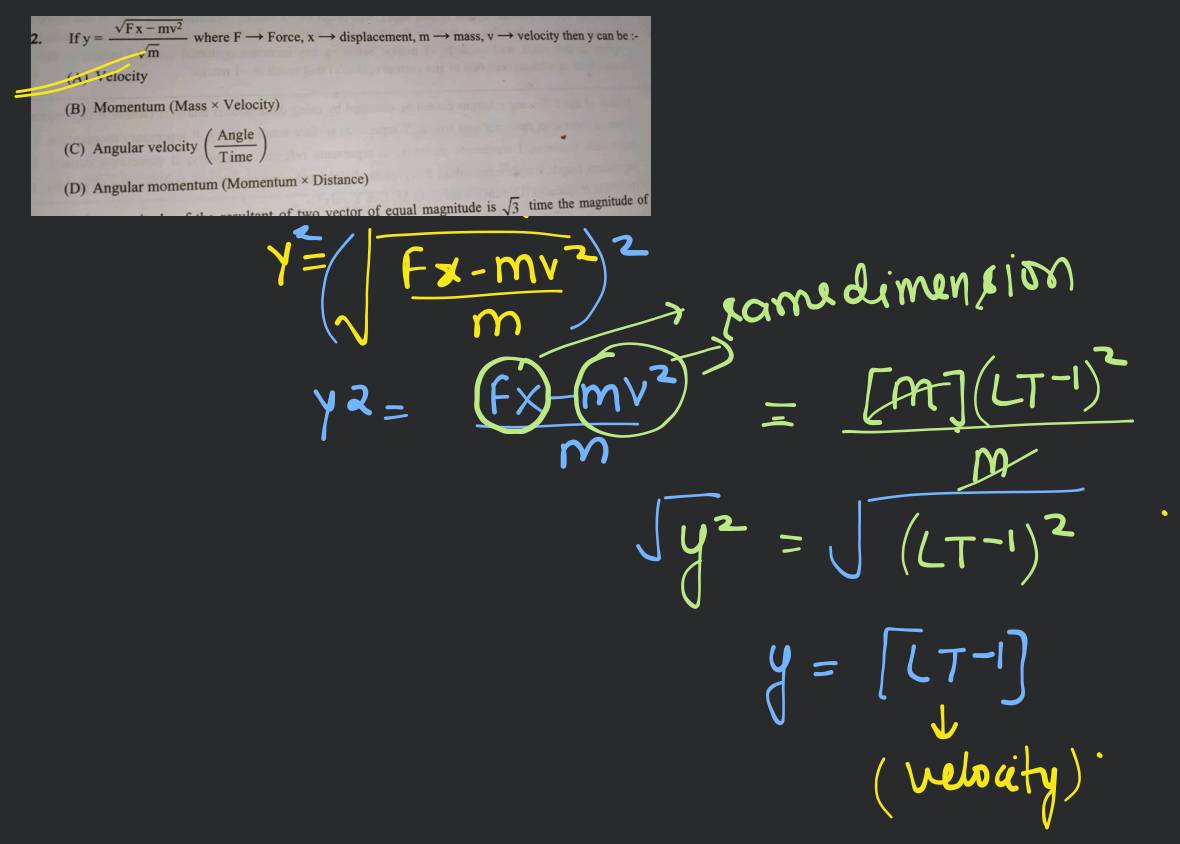 2. If y = √(Fx − mv²) / √m where F → Force, x → displacement, m → mass, v → velocity then y can be :-
(A) Velocity
(B) Momentum (Mass × Velocity)
(C) Angular velocity (Angle / Time)
(D) Angular momentum (Momentum × Distance)
of two vector of equal magnitude is √3 time the magnitude of
y² = (√(Fx - mv² / m))²
same dimension
y2 = Fx - mv² / m = [M](LT-1)² / M
√y² = √(LT-1)²
y = [LT-1]
↓
(velocity)